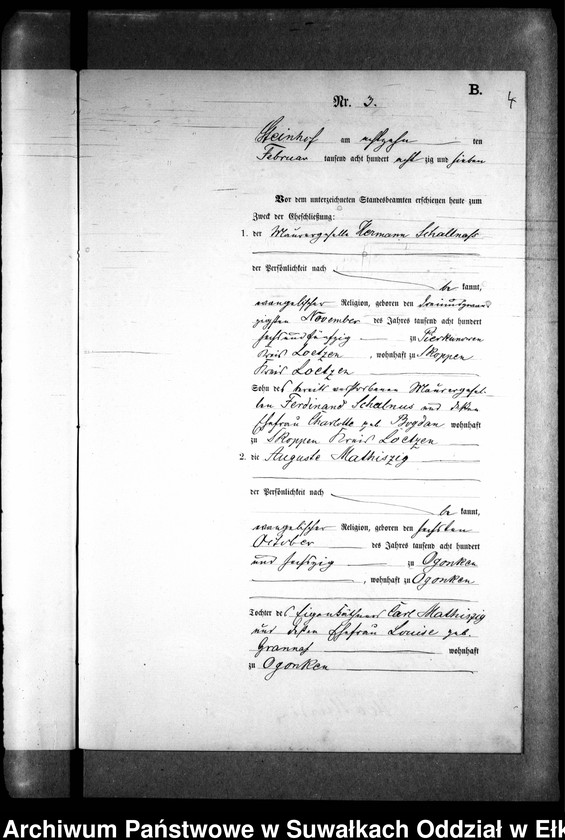 B.
4
Nr. 3.
Steinhof am achtzehn ten
Februar tausend acht hundert acht zig und sieben
Vor dem unterzeichneten Standesbeamten erschienen heute zum
Zweck der Eheschließung:
1. der Maurergeselle Hermann Schallnass
der Persönlichkeit nach
be kannt,
evangelischer Religion, geboren den dreiundzwan
zigsten November des Jahres tausend acht hundert
sechsundfünfzig zu Pierkunowen
Kreis Loetzen, wohnhaft zu Skoppen
Kreis Loetzen
Sohn des bereits verstorbenen Maurergesel-
len Ferdinand Schalnus und dessen
Ehefrau Charlotte geb Bogdan wohnhaft
zu Skoppen Kreis Loetzen
2. die Auguste Mathiszig
der Persönlichkeit nach
be kannt,
evangelischer Religion, geboren den sechsten
October des Jahres tausend acht hundert
und sechszig zu Ogonken
, wohnhaft zu Ogonken
Tochter des Eigenkäthners Carl Mathiszig
und dessen Ehefrau Louise geb.
wohnhaft
zu Ogonken
Archiwum Państwowe w Suwałkach Oddział w Ełk